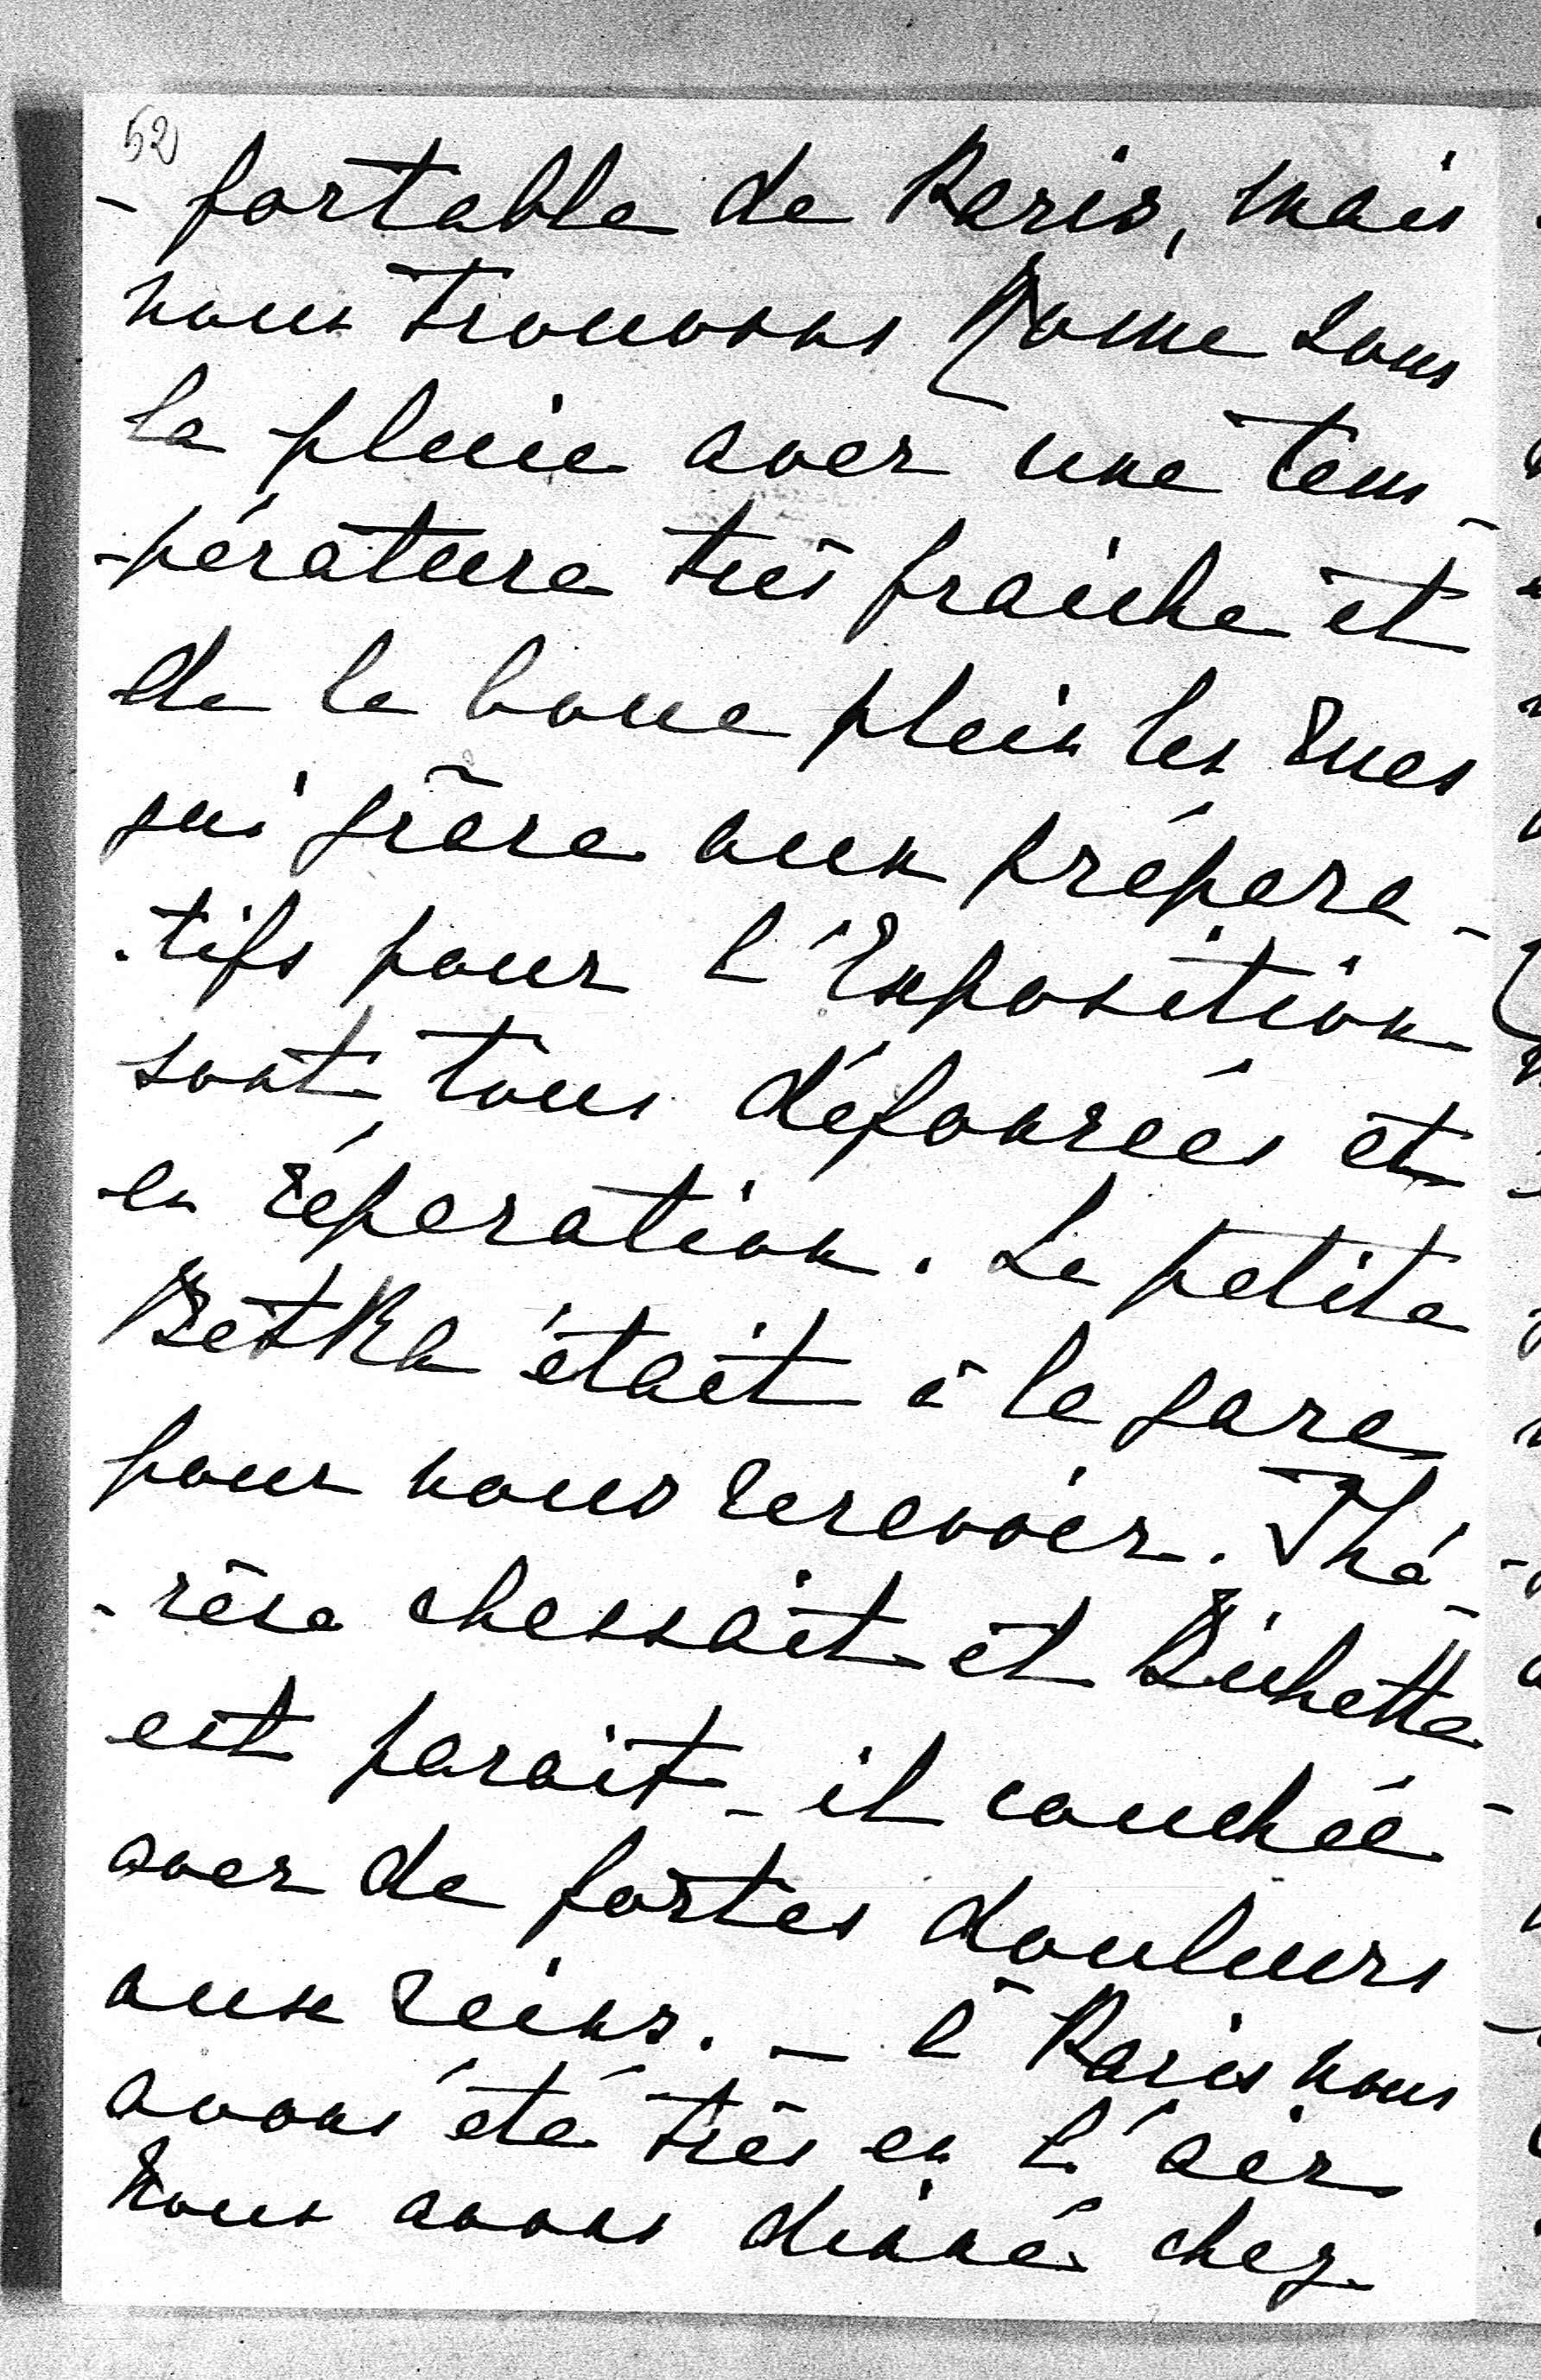 52
- fortable de Paris, mais
nous trouvons Rome sous
la pluie avec une tem-
-pérature très fraiche et
de la boue plein les rues
qui grâce aux prépara-
-tifs pour l'Exposition
sont tous défoncées et
en réparation. La petite
Betka était à la gare
pour nous recevoir. Thé-
-rèse chassait et Bichette
est parait-il couchée
avec de fortes douleurs
aux reins. - À Paris nous
avons été très en l'air
Nous avons dinné chez